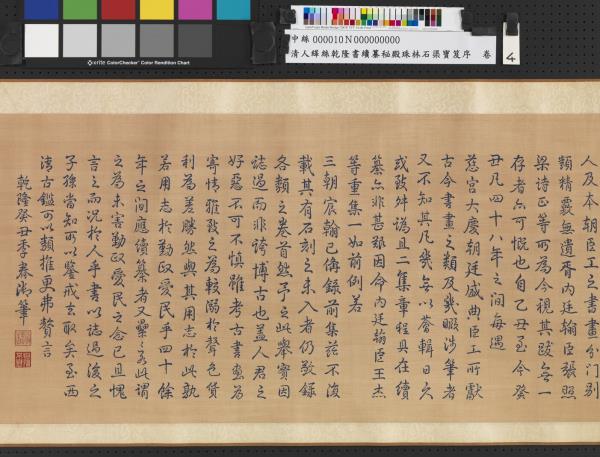 x-rite ColorChecker Color Rendition Chart
中絲000010N000000000
清人緙絲乾隆書續纂秘殿珠林石渠寶笈序 卷
4
人及本朝臣工之書畫分門別
類精覈無遺胥內廷翰臣張照
梁詩正等所為今視其跋無一
存者亦可慨也自乙丑至今癸
丑凡四十八年之間每遇
慈宮大慶朝廷盛典臣工所獻
古今書畫之類及幾暇涉筆者
又不知其凡幾無以薈輯日久
或致舛譌且二集章程具在續
纂亦非甚艱因命內廷翰臣王杰
等重集一如前例若
三朝宸翰已備錄前集茲不復
載其有石刻之未入者仍敬錄
各類之卷首然予之此舉實因
誌過而非誇博古也蓋人君之
好惡不可不慎雖考古書畫為
寄情雅致之為較溺於聲色貨
利為差勝然與其用志於此孰
若用志於勤政愛民乎四十餘
年之間應續纂者又纍々若此謂
之為未害勤政愛民之念已且愧
言之而況於人乎書以誌過後之
子孫當知所以鑒戒去取矣至西
清古鑑可以類推更弗贅言
乾隆癸丑季春御筆